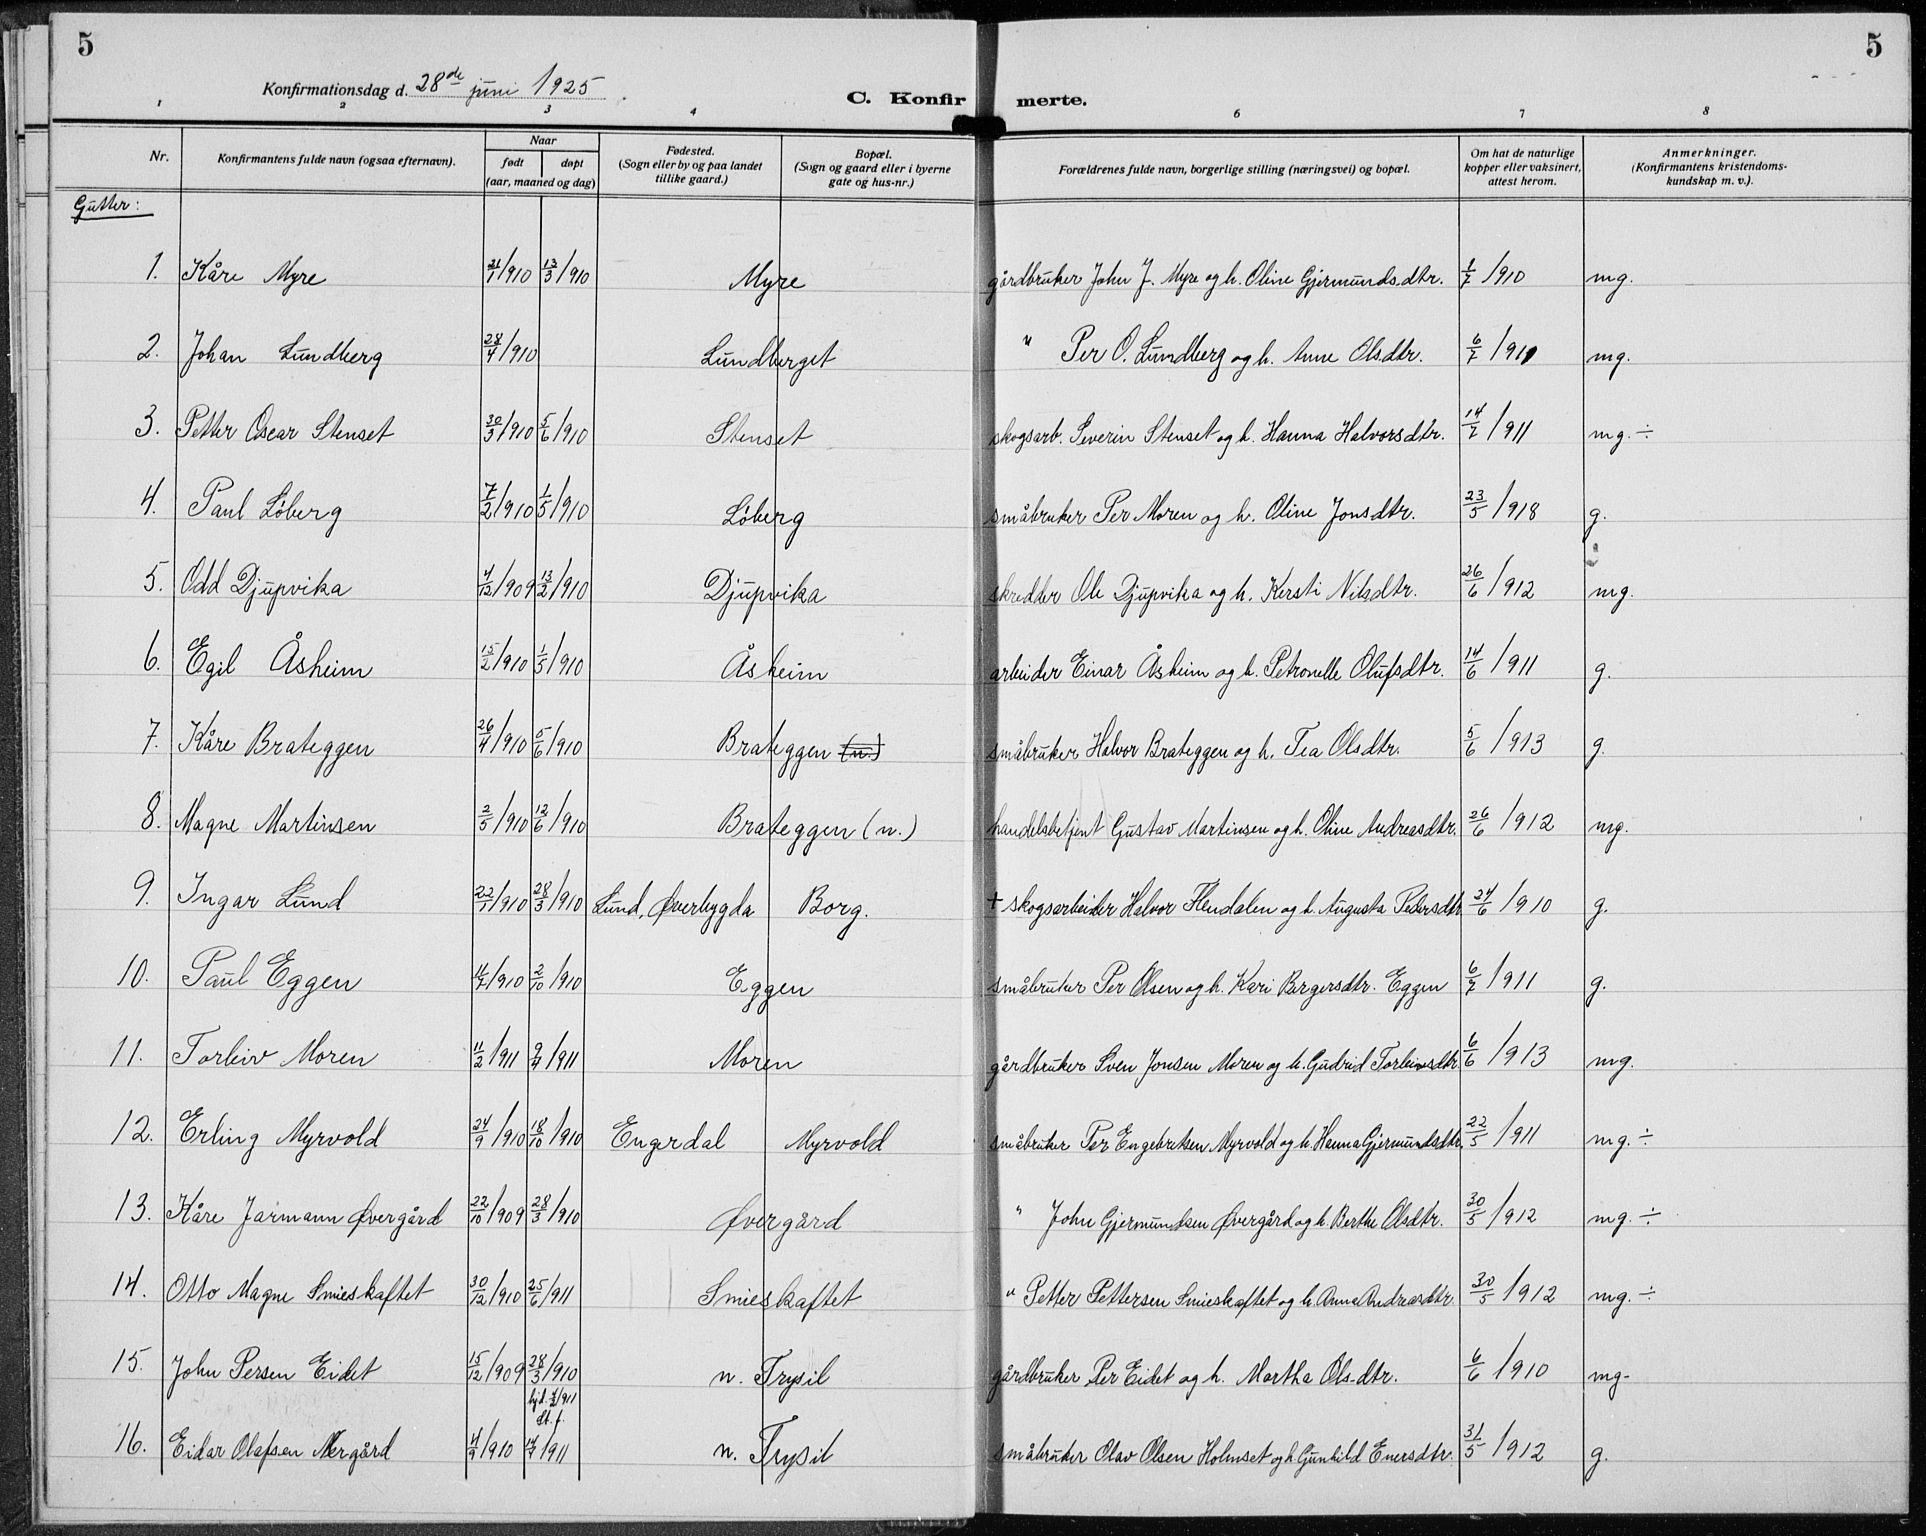 5 5
Konfirmationsdag d. 28de juni 1925. C. Konfirmerte.
1 2 3 4 6 7 8
Nr. Konfirmantens fulde navn (ogsaa efternavn). Naar født døpt (aar, maaned og dag) Fødested. (Sogn eller by og paa landet tillike gaard.) Bopæl. (Sogn og gaard eller i byerne gate og hus-nr.) Forældrenes fulde navn, borgerlige stilling (næringsvei) og bopæl. Om hat de naturlige kopper eller vaksinert, attest herom. Anmerkninger. (Konfirmantens kristendomskundskap m. v.).
Gutter:
1. Kåre Myre 21/1/910 13/3/910 Myre gårdbruker John J. Myre og h. Oline Gjermundsdtr. 1/7/910 mg.
2. Johan Lundberg 28/4/910 Lundberget " Per O. Lundberg og h. Anne Olsdtr. 6/7/911 mg.
3. Petter Oscar Stenset 30/3/910 5/6/910 Stenset skogsarb. Severin Stenset og h. Hanna Halvorsdtr. 14/7/911 mg. ÷
4. Paul Løberg 7/2/910 1/5/910 Løberg småbruker Per Moren og h. Oline Jonsdtr. 23/5/918 g.
5. Odd Djupvika 4/12/909 13/2/910 Djupvika skredder Ole Djupvika og h. Kersti Nilsdtr. 26/6/912 mg.
6. Egil Åsheim 15/2/910 1/5/910 Åsheim arbeider Einar Åsheim og h. Petronelle Olufsdtr. 14/6/911 g.
7. Kåre Brateggen 26/4/910 5/6/910 Brateggen (n.) småbruker Halvor Brateggen og h. Tea Olsdtr. 5/6/913 g.
8. Magne Martinsen 2/5/910 12/6/910 Brateggen (n.) handelsbetjent Gustav Martinsen og h. Oline Andreasdtr. 26/6/912 mg.
9. Ingar Lund 22/1/910 28/3/910 Lund, Øverbygda Borg. † skogsarbeider Halvor Flendalen og h. Augusta Pedersdtr. 24/6/910 g.
10. Paul Eggen /910 2/10/910 Eggen småbruker Per Olsen og h. Kari Børgersdtr. Eggen 6/7/911 g.
11. Torleiv Moren 11/2/911 9/4/911 Moren gårdbruker Sven Jonsen Moren og h. Gudrid Torleivsdtr. 6/6/913 mg.
12. Erling Myrvold 24/9/910 18/10/910 Engerdal Myrvold småbruker Per Engebretsen Myrvold og h. Henna Gjermundsdtr. 22/5/911 mg. ÷
13. Kåre Jarmann Øvergård 22/10/909 28/3/910 Øvergård " John Gjermundsen Øvergård og h. Berthe Olsdtr. 30/5/912 mg. ÷
14. Otto Magne Smieskaftet 30/12/910 25/6/911 Smieskaftet " Petter Pettersen Smieskaftet og h. Anna Andreasdtr. 30/5/912 mg. ÷
15. John Persen Eidet 15/12/909 28/3/910 n. Trysil gårdbruker Per Eidet og h. Martha Olsdtr. 6/6/910 mg.
st. f.
16. Eidar Olafsen Nergård 4/9/910 14/7/911 n. Trysil småbruker Olav Olsen Holmset og h. Gunhild Enersdtr. 31/5/912 g.